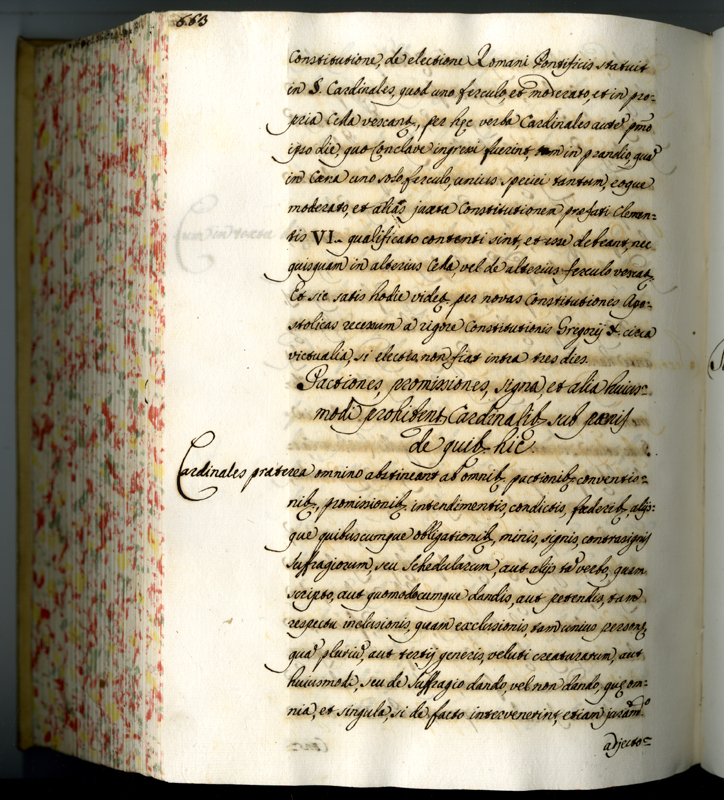 663
Constitutione, de electione Romani Pontificis statuit
in §. Cardinales, quod uno ferculo, et moderato, et in pro=
pria Cella vescant, per hęc verba Cardinales aute pmo
ipso die, quo Conclave ingressi fuerint, in prandio, qua
in Cæna uno solo ferculo, unius speciei tantum, eoque
moderato, et alias juxta Constitutionem prefati Clemen=
tis VI. qualificato contenti sint, et esse debeant, nec
quisquam in alterius Cella vel de alterius ferculo vescat,
Et sic satis hodie videt per novas Constitutiones Apo=
stolicas recessum a rigore Constitutionis Gregorij X. circa
victualia, si electio, non fiat intra tres dies.
Pactiones, promissiones, signa, et alia huius=
modi prohibent Cardinalib sub pænis
de quib hic.
Cardinales præterea omnino abstineant ab omnib pactionib, conventio=
nib, promissionib, intendimentis, condictis, fæderib, alijs=
que quibuscumque obligationib, minis, signis, contrasignis
suffragiorum, seu Schedularum, aut alijs ta verbo, quam
scripto, aut quomodocumque dandis, aut petendis, tam
respectu inclusionis, quam exclusionis, tam unius personę,
qua pluriu, aut tertij generis, veluti creaturarum, aut
huiusmodi, seu de suffragio dando, vel non dando, quę om=
nia, et singula, si de facto intervenerint, etiam juram.to
adjecto=